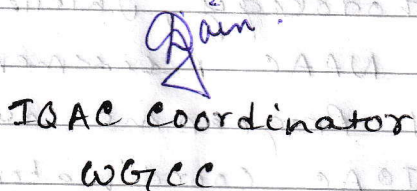 Jain
IQAC Coordinator
WGCC